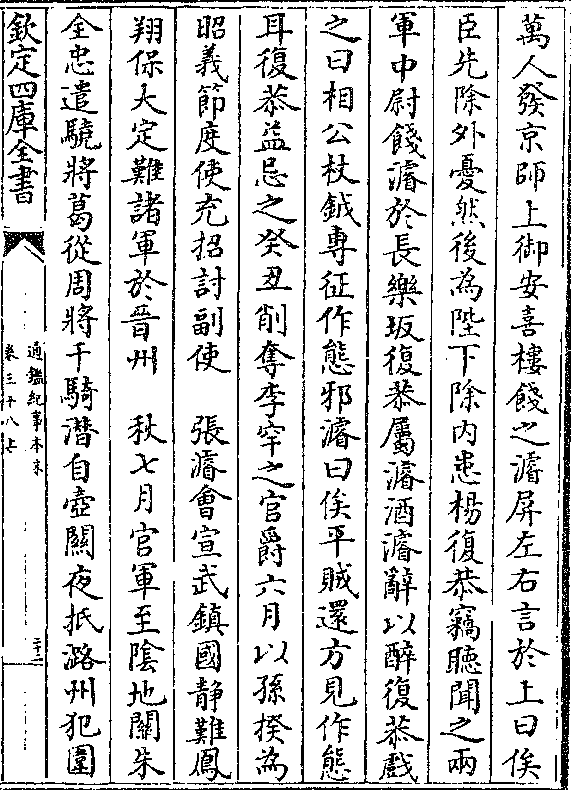 萬人發京師上御安喜樓餞之濬屏左右言於上曰俟
臣先除外憂然後為陛下除内患楊復恭竊聽聞之兩
軍中尉餞濬於長樂坂復恭屬濬酒濬辭以醉復恭戲
之曰相公杖鉞専征作態邪濬曰俟平賊還方見作態
耳復恭益忌之癸丑削奪李罕之官爵六月以孫揆為
昭義節度使充招討副使　張濬會宣武鎮國靜難鳳
翔保大定難諸軍於晉州　秋七月官軍至隂地關朱
全忠遣驍將葛從周將千騎潛自壺關夜抵潞州犯圍
欽定四庫全書
通鑑紀事本末
卷三十八上
二十二